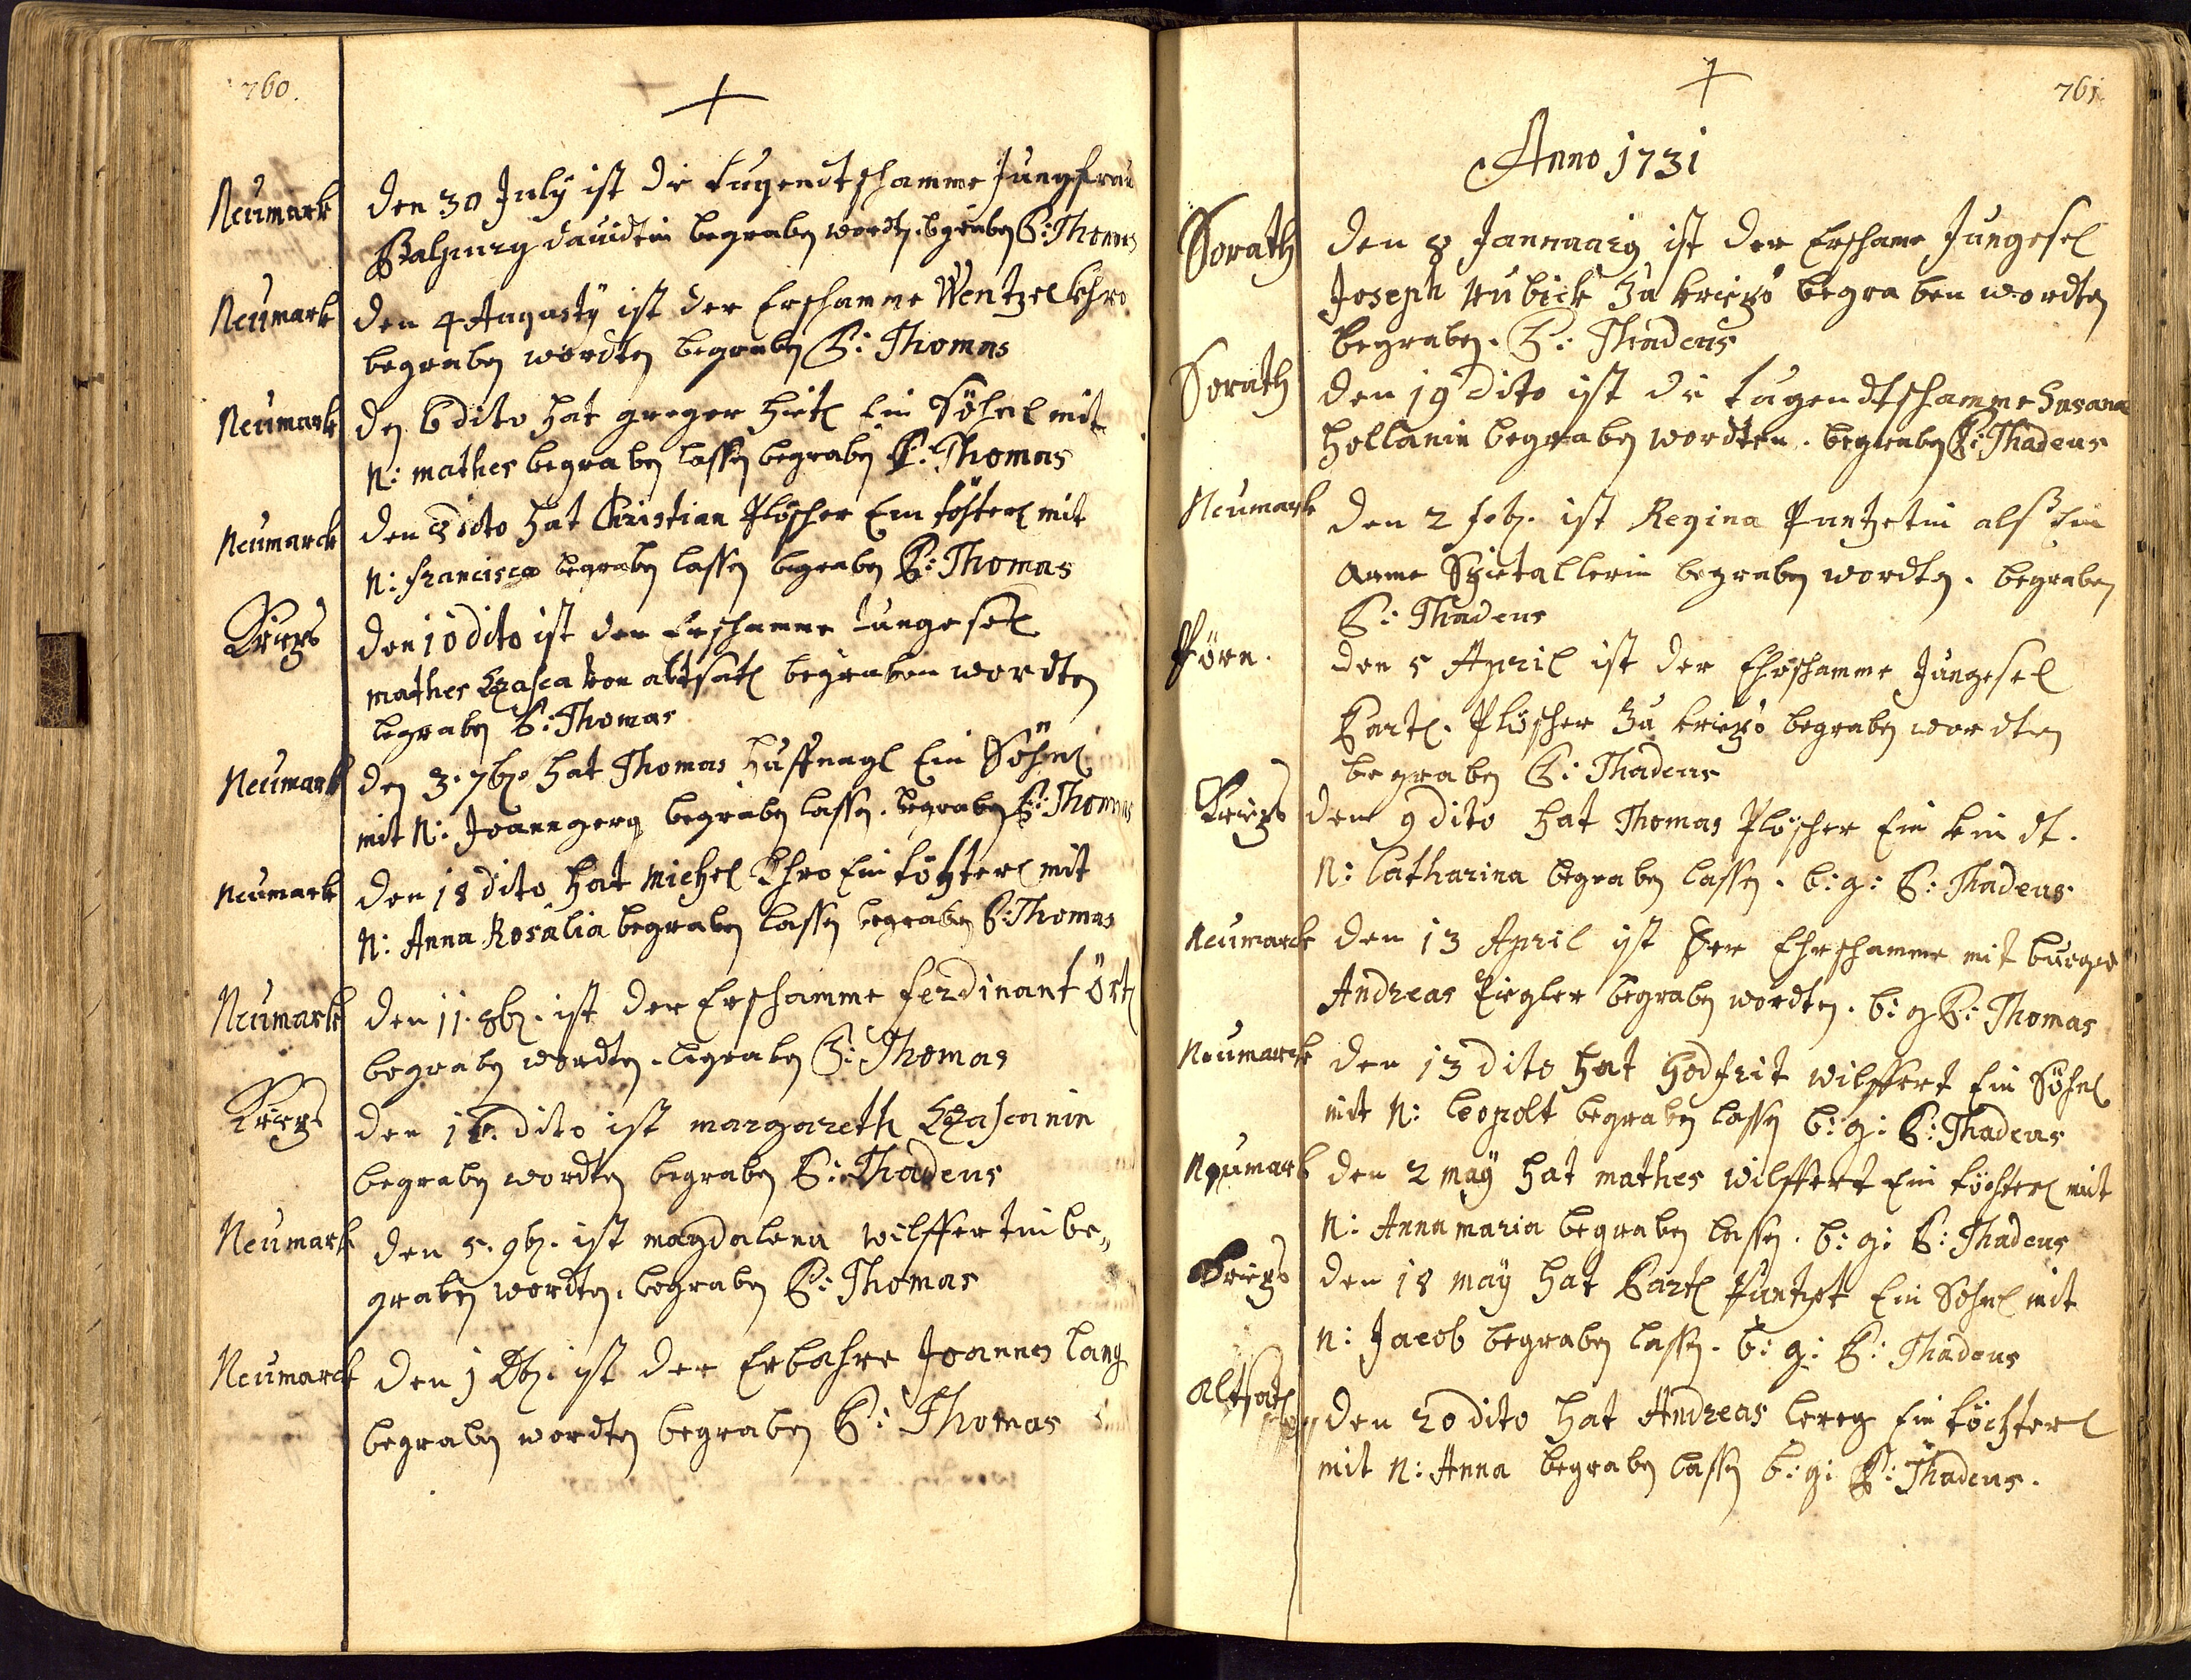 760.
Neumark den 30 July ist die tugendtschamme Jungfrau
Walpurg Dauidtin begraben wordten. begraben P: Thomas
Neumark den 4 Augusty ist der Erschamme Wentzel Ehro
begraben wordten begraben P: Thomas
Neumark den 6 dito hat greger hietl Ein Söhnl mit
N: mathes begraben lassen begraben P: Thomas
Neumarck den 8 dito hat Christian Plöscher Ein töchterl mit
N: francisca begraben lassen begraben P: Thomas
Kriegs den 10 dito ist der Erschamme Jungesel
mathes von altsatl begraben wordten
begraben P: Thomas
Neumark den 3. 7br. hat Thomas Huffnagl Ein Söhnl
mit N: Joanngerg begraben lassen. begraben P: Thomas
Neumark den 18 dito hat michel Ehro Ein töchterl mit
N: Anna Rosalia begraben lassen begraben P: Thomas
Neumark den 11. 8br. ist der Erschamme ferdinant Örtl
begraben wordten. begraben P: Thomas
Kriegs den 16. dito ist margareth
begraben wordten begraben P: Thadeus
Neumark den 5. 9br. ist magdalena wilffertin be„
graben wordten. begraben P: Thomas
Neumarck den 1 Xbr. ist der Erbahre Joannes Lang
begraben wordten begraben P: Thomas
761.
Anno 1731
Sorath den 8 Jannuary ist der Erschame Jungesel
Joseph Kubick zu begraben wordten
begraben. P: Thadeus
Sorath den 19 dito ist die tugendtschamme Susana
Hollanin begraben wordten. begraben P: Thadeus
Neumark den 2 feb. ist Regina Puntzetin alß Ein
Arme Spietallerin begraben wordten. begraben
P: Thadeus
den 5 April ist der Ehrschamme Jungesel
Bartl. Plöscher zu begraben wordten
begraben P: Thadeus
Kriegs den 9 dito hat Thomas Plöscher Ein kindt.
N: Catharina begraben lassen. b: g: P: Thadeus
Neumarck den 13 April ist der Ehrschamme mit burger
Andreas Ziegler begraben wordten. b: g P: Thomas
Neumarck den 13 dito hat Hodfrit wilffert Ein Söhnl
mit N: Leopolt begraben lassen b: g: P: Thadeus
Neumark den 2 may hat mathes wilffert Ein töchterl mit
N: Anna maria begraben lassen. b: g: P: Thadeus
Kriegs den 18 may hat Bartl Puntzet Ein Söhnl mit
N: Jacob begraben lassen. b: g: P: Thadeus
altsatl den 20 dito hat Andreas Ein töchterl
mit N: Anna begraben lassen b: g: P: Thadeus.